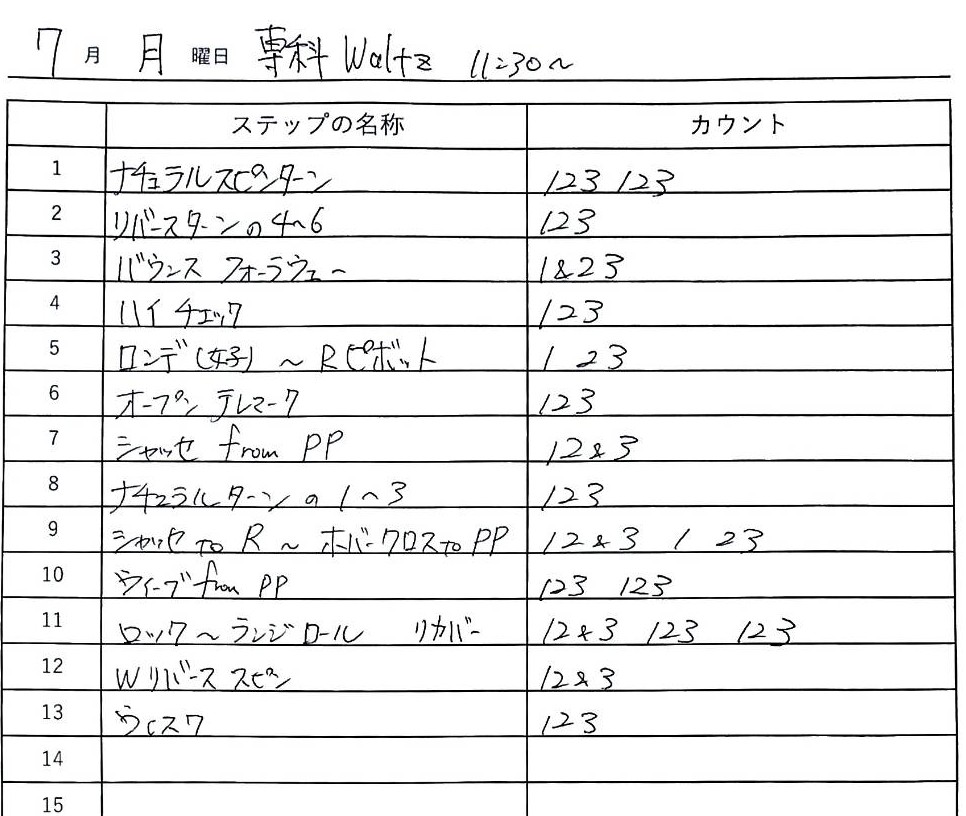 7月 月曜日 専科 Waltz 11:30~
ステップの名称 カウント
1 ナチュラルスピンターン 123 123
2 リバースターンの4~6 123
3 バウンス フォーラウェー 1&23
4 ハイチェック 123
5 ロンデ(女子) ~ Rピボット 1 23
6 オープン テレマーク 123
7 シャッセ from PP 12&3
8 ナチュラルターンの1~3 123
9 シャッセ to R ~ ホバークロス to PP 12&3 1 23
10 ウィーブ from PP 123 123
11 ロック~ランジロール リカバー 12&3 123 123
12 Wリバース スピン 12&3
13 ウィスク 123
14
15